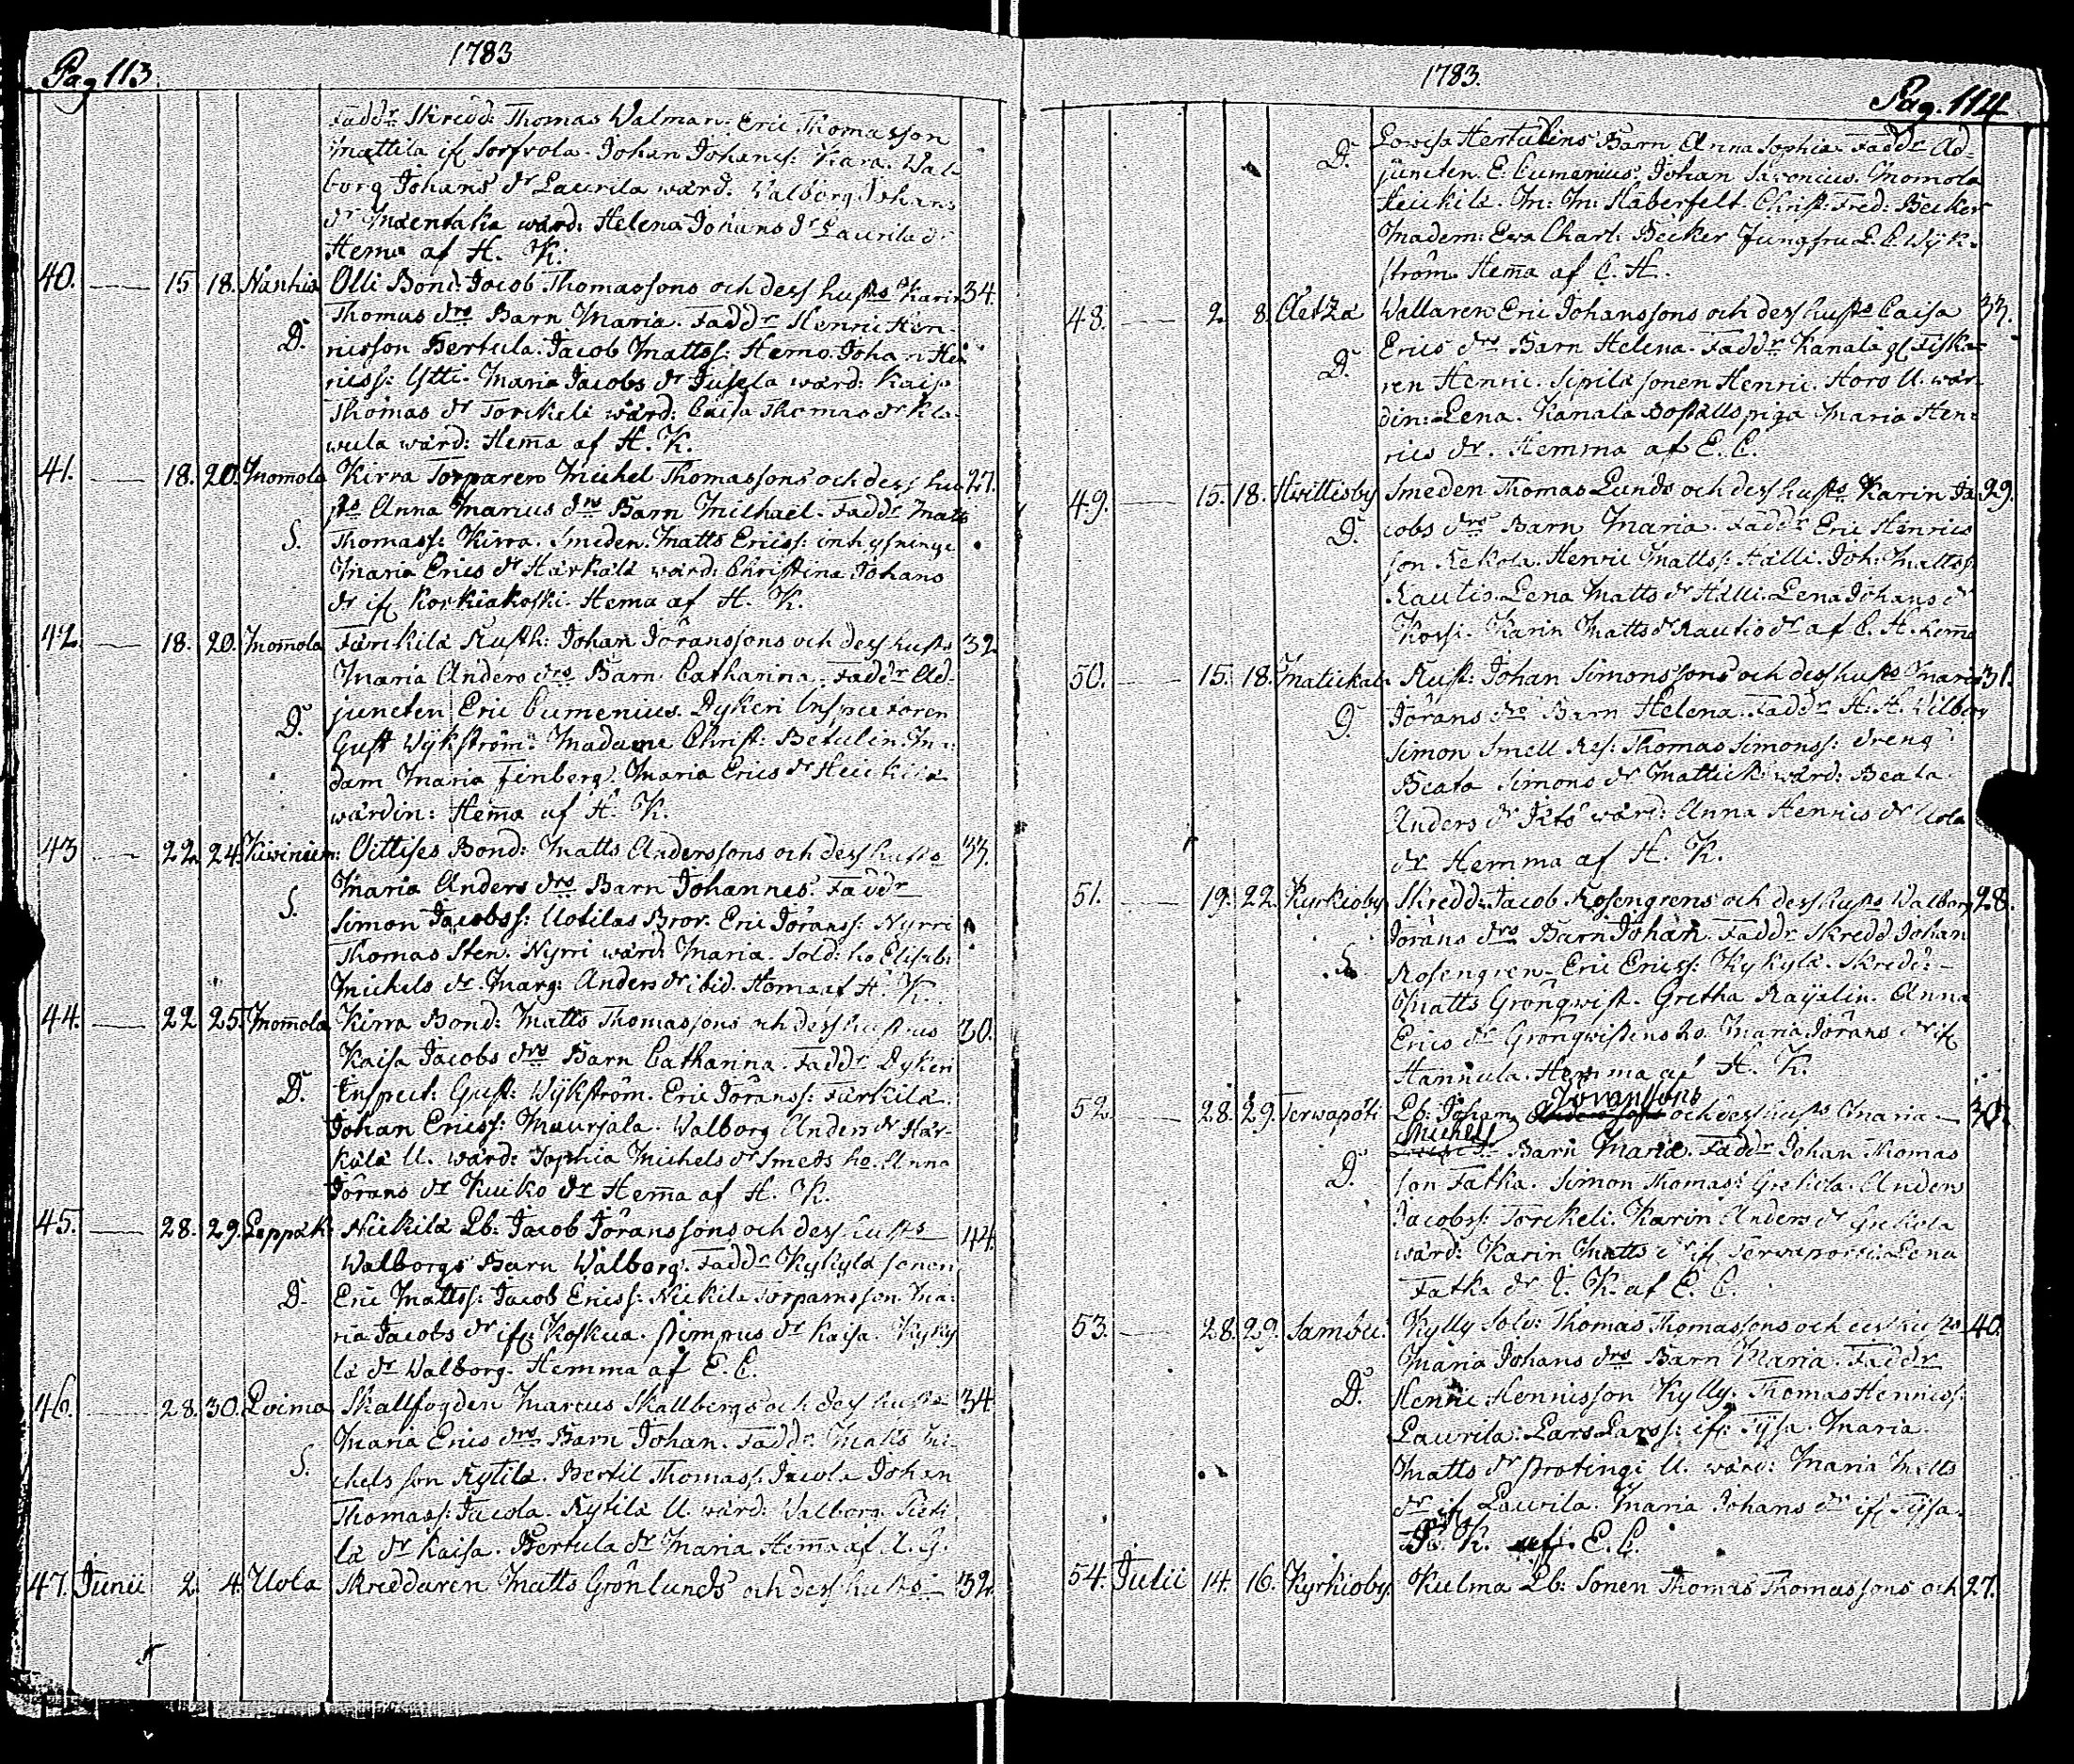 Pag 113.
1783
Faddr Skredd: Thomas Walman. Eric Thomasson
Mattila if Sorfvola. Johan Johanss: Kara. Wal-
borg Johans dr Laurila wärd. Walborg Johans
dr Mäentaka wärd: Helena Johans dr Laurila dr
Hema af H. K.
40. — 15 18. Nanhia Olli Bond: Jacob Thomassons och dess husts Karin 34.
Thomas drs Barn Maria. Faddr Henric Hen-
D. ricsson Bertula. Jacob Mattss: Hemo. Johan Hen
ricss: Ytti. Maria Jacobs dr Jusela wärd: Kaisa
Thomas dr Torckeli wärd: Caisa Thomas dr Kla-
wula wärd: Hem̄a af H. K.
41. — 18. 20. Mom̄ola Kirra Torparen Michel Thomassons och dess hu 27.
sts Anna Marcus drs Barn Michael. Faddr Matts
S. Thomass: Kirra. Smeden Matts Ericss: inhysninge
Maria Erics dr Härkälä wärd: Christina Johans
dr if Korkiakoski. Hema af H. K.
42. — 18. 20. Mom̄ola Farckila Rusth: Johan Jöranssons och dess husts 32
Maria Anders drs Barn Catharina. Faddr Ad-
juncten Eric Cumenius. Dykeri Inspectoren
D. Gust Wijkström. Madame Christ: Betulin. Ma-
dam Maria Finberg. Maria Erics dr Heickilä
wärdin: Hem̄a af H. K.
43 — 22. 24. Kiviniem: Oittises Bond: Matts Anderssons och dess husts 33.
Maria Anders drs Barn Johannes. Faddr
S. Simon Jacobss: Uotilas Bror. Eric Jöranss: Nyrri
Thomas Sten. Nyrri wärd: Maria. Sold: ho Elisab:
Michels dr. Marg: Anders dr ibid. Hema af H. K.
44. — 22 25. Mom̄ola Kirra Bond: Matts Thomassons och dess hustrus 30.
Kaisa Jacobs drs Barn Catharina. Faddr Dykeri
D. Inspect: Gust: Wijkström. Eric Jöranss: Farkila.
Johan Ericss: Maurjala. Walborg Anders dr Här-
kälä U. wärd: Sophia Michels dr Smeds ho. Anna
Jörans dr Kuiko dr Hem̄a af H. K.
45. — 28. 29. Leppäk: Nickilä Lb: Jacob Jöranssons och dess husts 44.
Walborgs Barn Walborg. Faddr Kykylä sonen
D. Eric Mattss: Jacob Ericss: Nickila Torparesson. Ma-
ria Jacobs dr if: Koskua. Pimpus dr Kaisa. Kyky
lä dr Walborg. Hemma af E. C.
46. — 28. 30. Loima Skallfogden Marcus Skallbergs och dess husts 34
Maria Erics drs Barn Johan. Faddr Matts Mi-
S. chelsson Rytilä. Bertil Thomass: Jacola Johan
Thomass: Jacola. Rytilä U. wärd: Walborg.
lä dr Kaisa. Bertula dr Maria Hem̄a af A. G.
47. Junii 2. 4. Uola Skreddaren Matts Grönlunds och dess husts 32.
1783.
Pag. 114
D. Lovisa Hertulins Barn Anna Sophia. Faddr Ad-
juncten E. Cumenius. Johan Saxonius. Momola
Heickilä. M: M: Haberfelt. Christ: Fred: Becker
Madem: Eva Charl: Becker Jungfru L. C. Wijk-
ström. Hem̄a af C. H.
48. — 2. 8. Aetzä Wallaren Eric Johanssons och dess husts Caisa 33.
Erics drs Barn Helena. Faddr Kanala gl Fiska-
D. ren Henric. Sipilä sonen Henric. Horo U. wär-
din: Lena. Kanala Boställspiga Maria Hen-
rics dr. Hemma af E. C.
49. — 15. 18. Hvittisby Smeden Thomas Lunds och dess husts Karin Ja 29.
D. cobs drs Barn Maria. Faddr Eric Henrics
son Kekola. Henric Mattss: Hälli. Joh: Mattss
Rautio. Lena Matts dr Hälli. Lena Johans dr
Kossi. Karin Matts dr Rautio dr af C. H. hem̄a
50. — 15. 18. Matickala Rust: Johan Simonssons och dess husts Maria 31.
D. Jörans drs Barn Helena. Faddr H. H. Wilberg
Simon Smell Res: Thomas Simonss: dreng
Beata Simons dr Mattick: wärd: Beata
Anders dr Isto wärd: Anna Henrics dr Uola
dr Hemma af H. K.
51. — 19. 22. Kyrkioby Skredd: Jacob Rosengrens och dess husts Walborg 28.
Jörans drs Barn Johan. Faddr Skredd Johan
S. Rosengren. Eric Ericss: Kykylä. Skredd:
Matts Gröngwist. Gretha Raijalin. Anna
Erics dr Gröngwistens ho. Maria Jörans dr if
Hannula. Hemma af H. K.
Joranssons
52. — 28. 29. Terwapöti Lb: Johan och dess husts Maria 30.
Michels
D. dr Barn Maria. Faddr Johan Thomas
son Fatka. Simon Thomas: Grekola. Anders
Jacobss: Torckeli. Karin Anders dr Grekola
wärd: Karin Matts dr if Terwaporti. Lena
Fatka dr I. K. af E. C.
53. — 28. 29. Sambu: Kylly Sold: Thomas Thomassons och dess husts 40.
Maria Johans drs Barn Maria. Faddr
D. Henric Henricsson Kylly. Thomas Henricss:
Laurila: Lars Larss: if: Tijsa. Maria
Matts dr Protingi U. wärd: Maria Matts
dr if Laurila. Maria Johans dr if Tijsa.
I. K. af. E. C.
54. Julii 14. 16. Kyrkioby. Kulma Lb: Sonen Thomas Thomassons och 27.